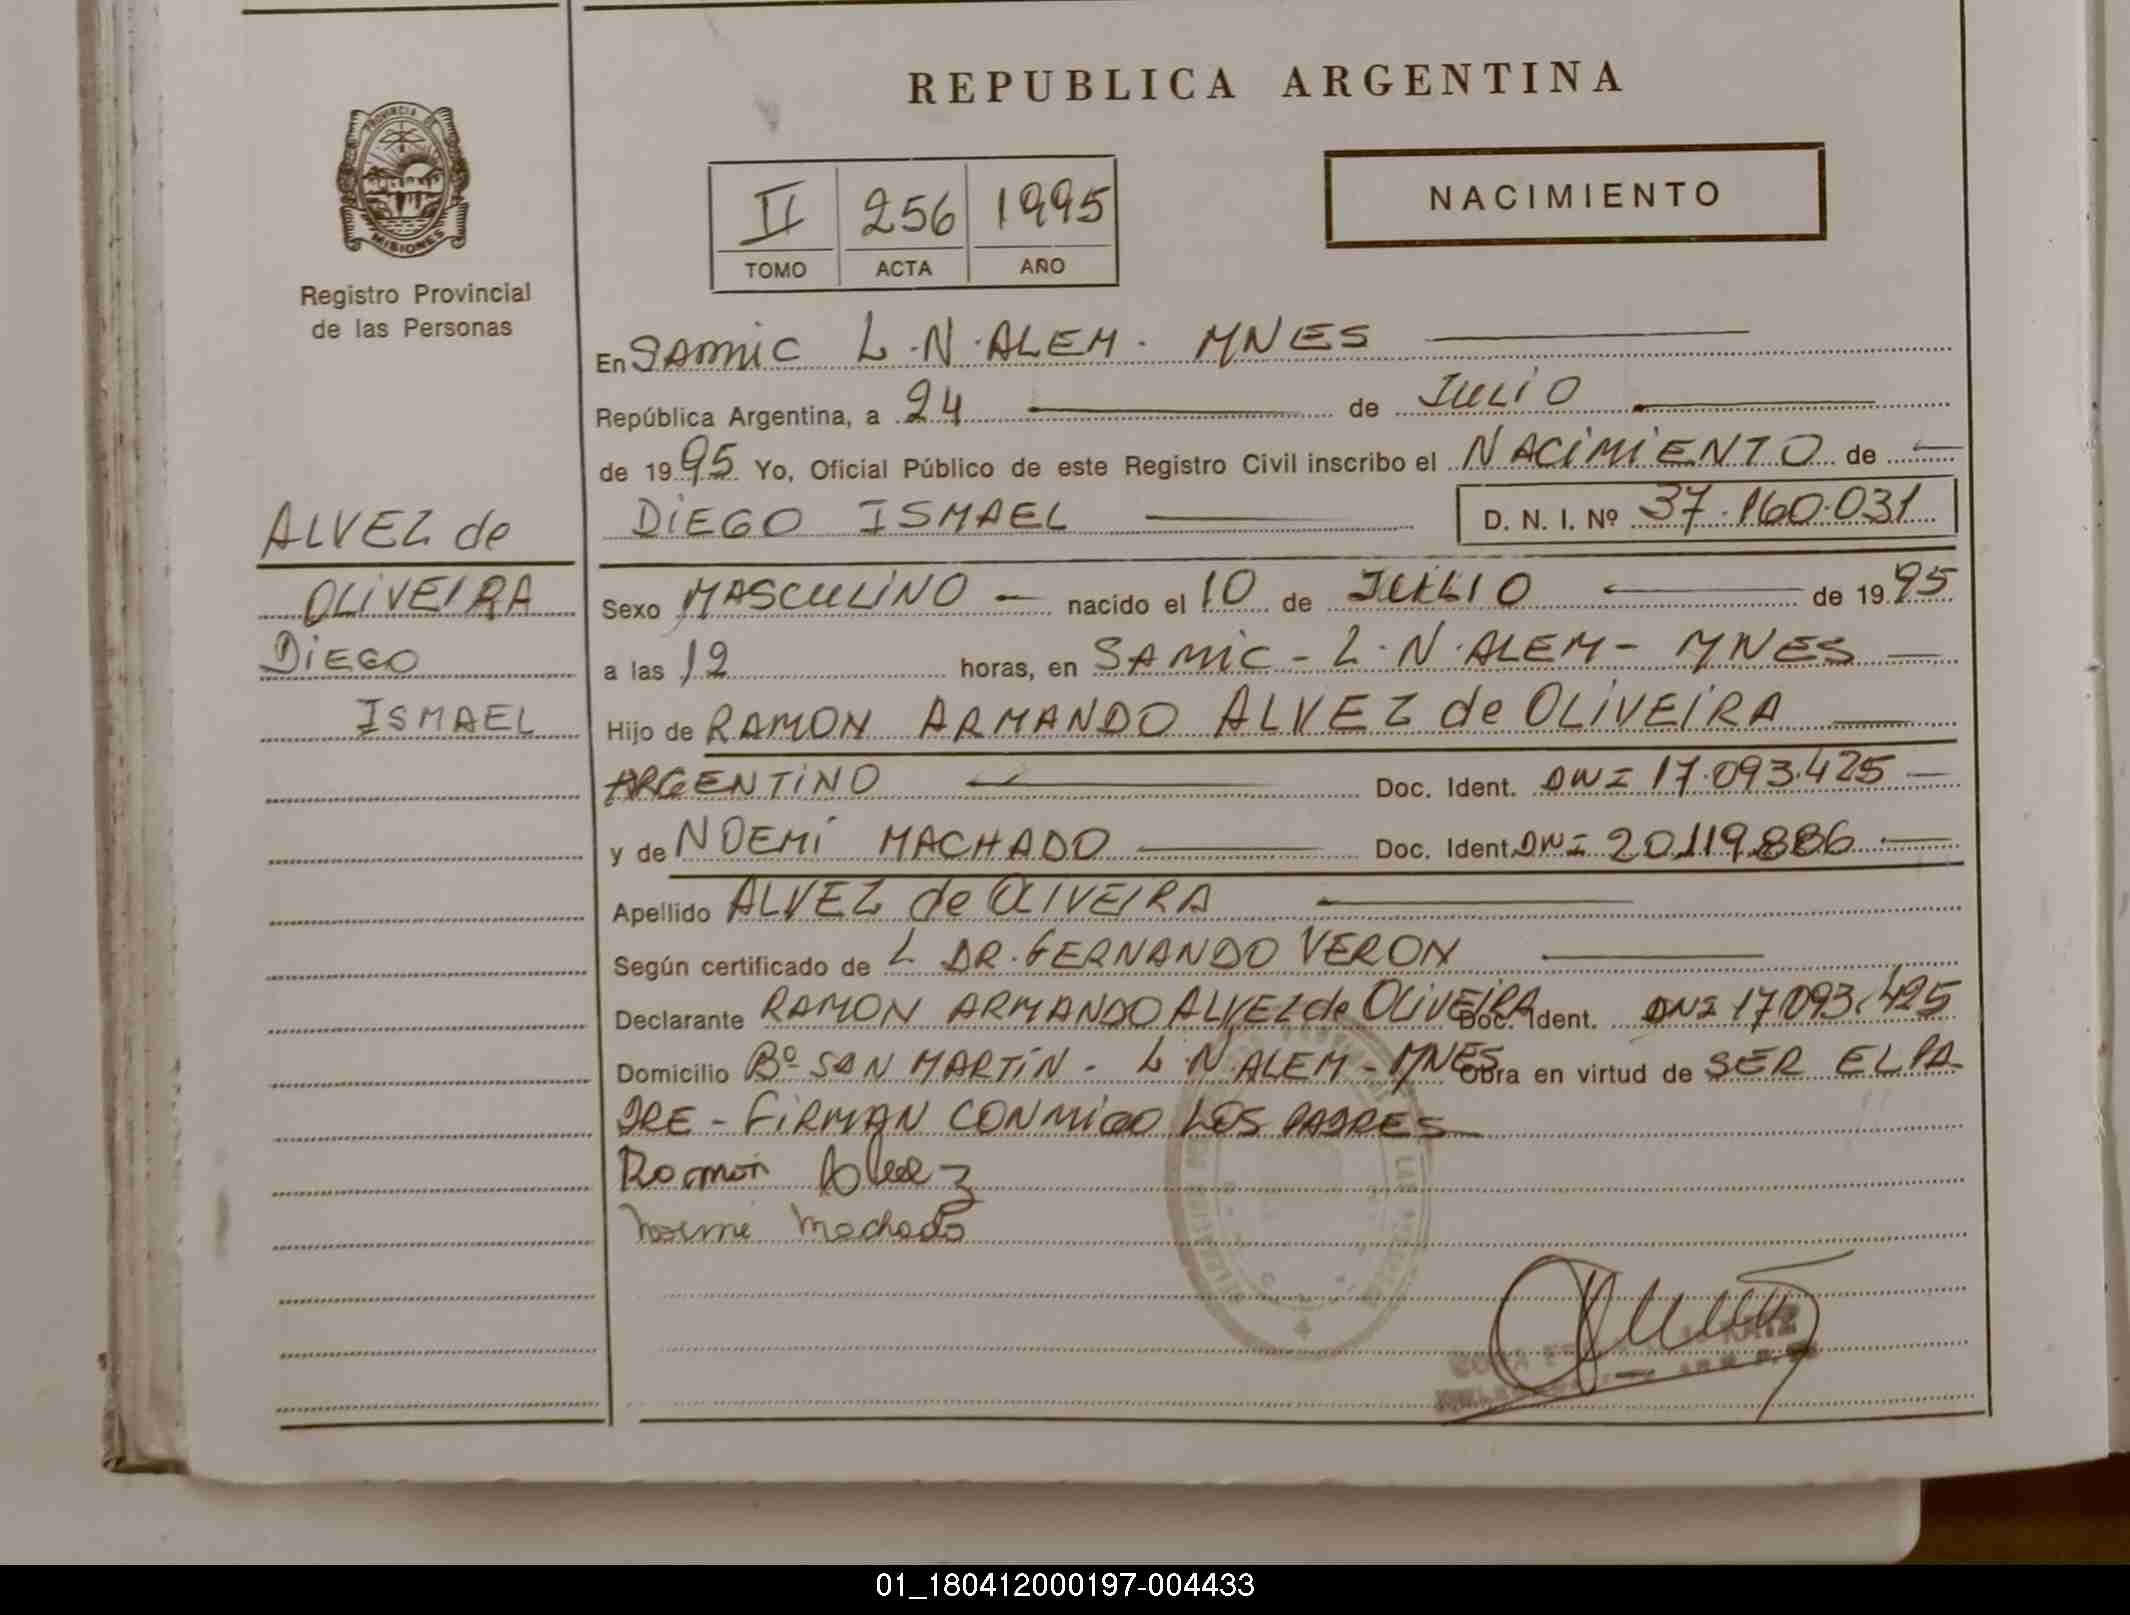 REPUBLICA ARGENTINA
PROVINCIA DE
MISIONES
Registro Provincial
de las Personas
II 256 1995
TOMO ACTA AÑO
NACIMIENTO
En SAMIC L.N.ALEM. MNES
República Argentina, a 24 de JULIO
de 1995 Yo, Oficial Público de este Registro Civil inscribo el NACIMIENTO de
DIEGO ISMAEL D. N. I. Nº 37.160.031
ALVEZ de
OLIVEIRA
DIEGO
ISMAEL
Sexo MASCULINO nacido el 10 de JULIO de 1995
a las 12 horas, en SAMIC - L.N.ALEM - MNES
Hijo de RAMON ARMANDO ALVEZ de OLIVEIRA
ARGENTINO Doc. Ident. DNI 17.093.425
y de NOEMI MACHADO Doc. Ident. DNI 20.119.886
Apellido ALVEZ de OLIVEIRA
Según certificado de L DR. FERNANDO VERON
Declarante RAMON ARMANDO ALVEZ de OLIVEIRA Doc. Ident. DNI 17.093.425
Domicilio Bº SAN MARTIN - L.N.ALEM - MNES Obra en virtud de SER EL PA
DRE - FIRMAN CONMIGO LOS PADRES
Ramon Alvez
Noemi Machado
01_180412000197-004433